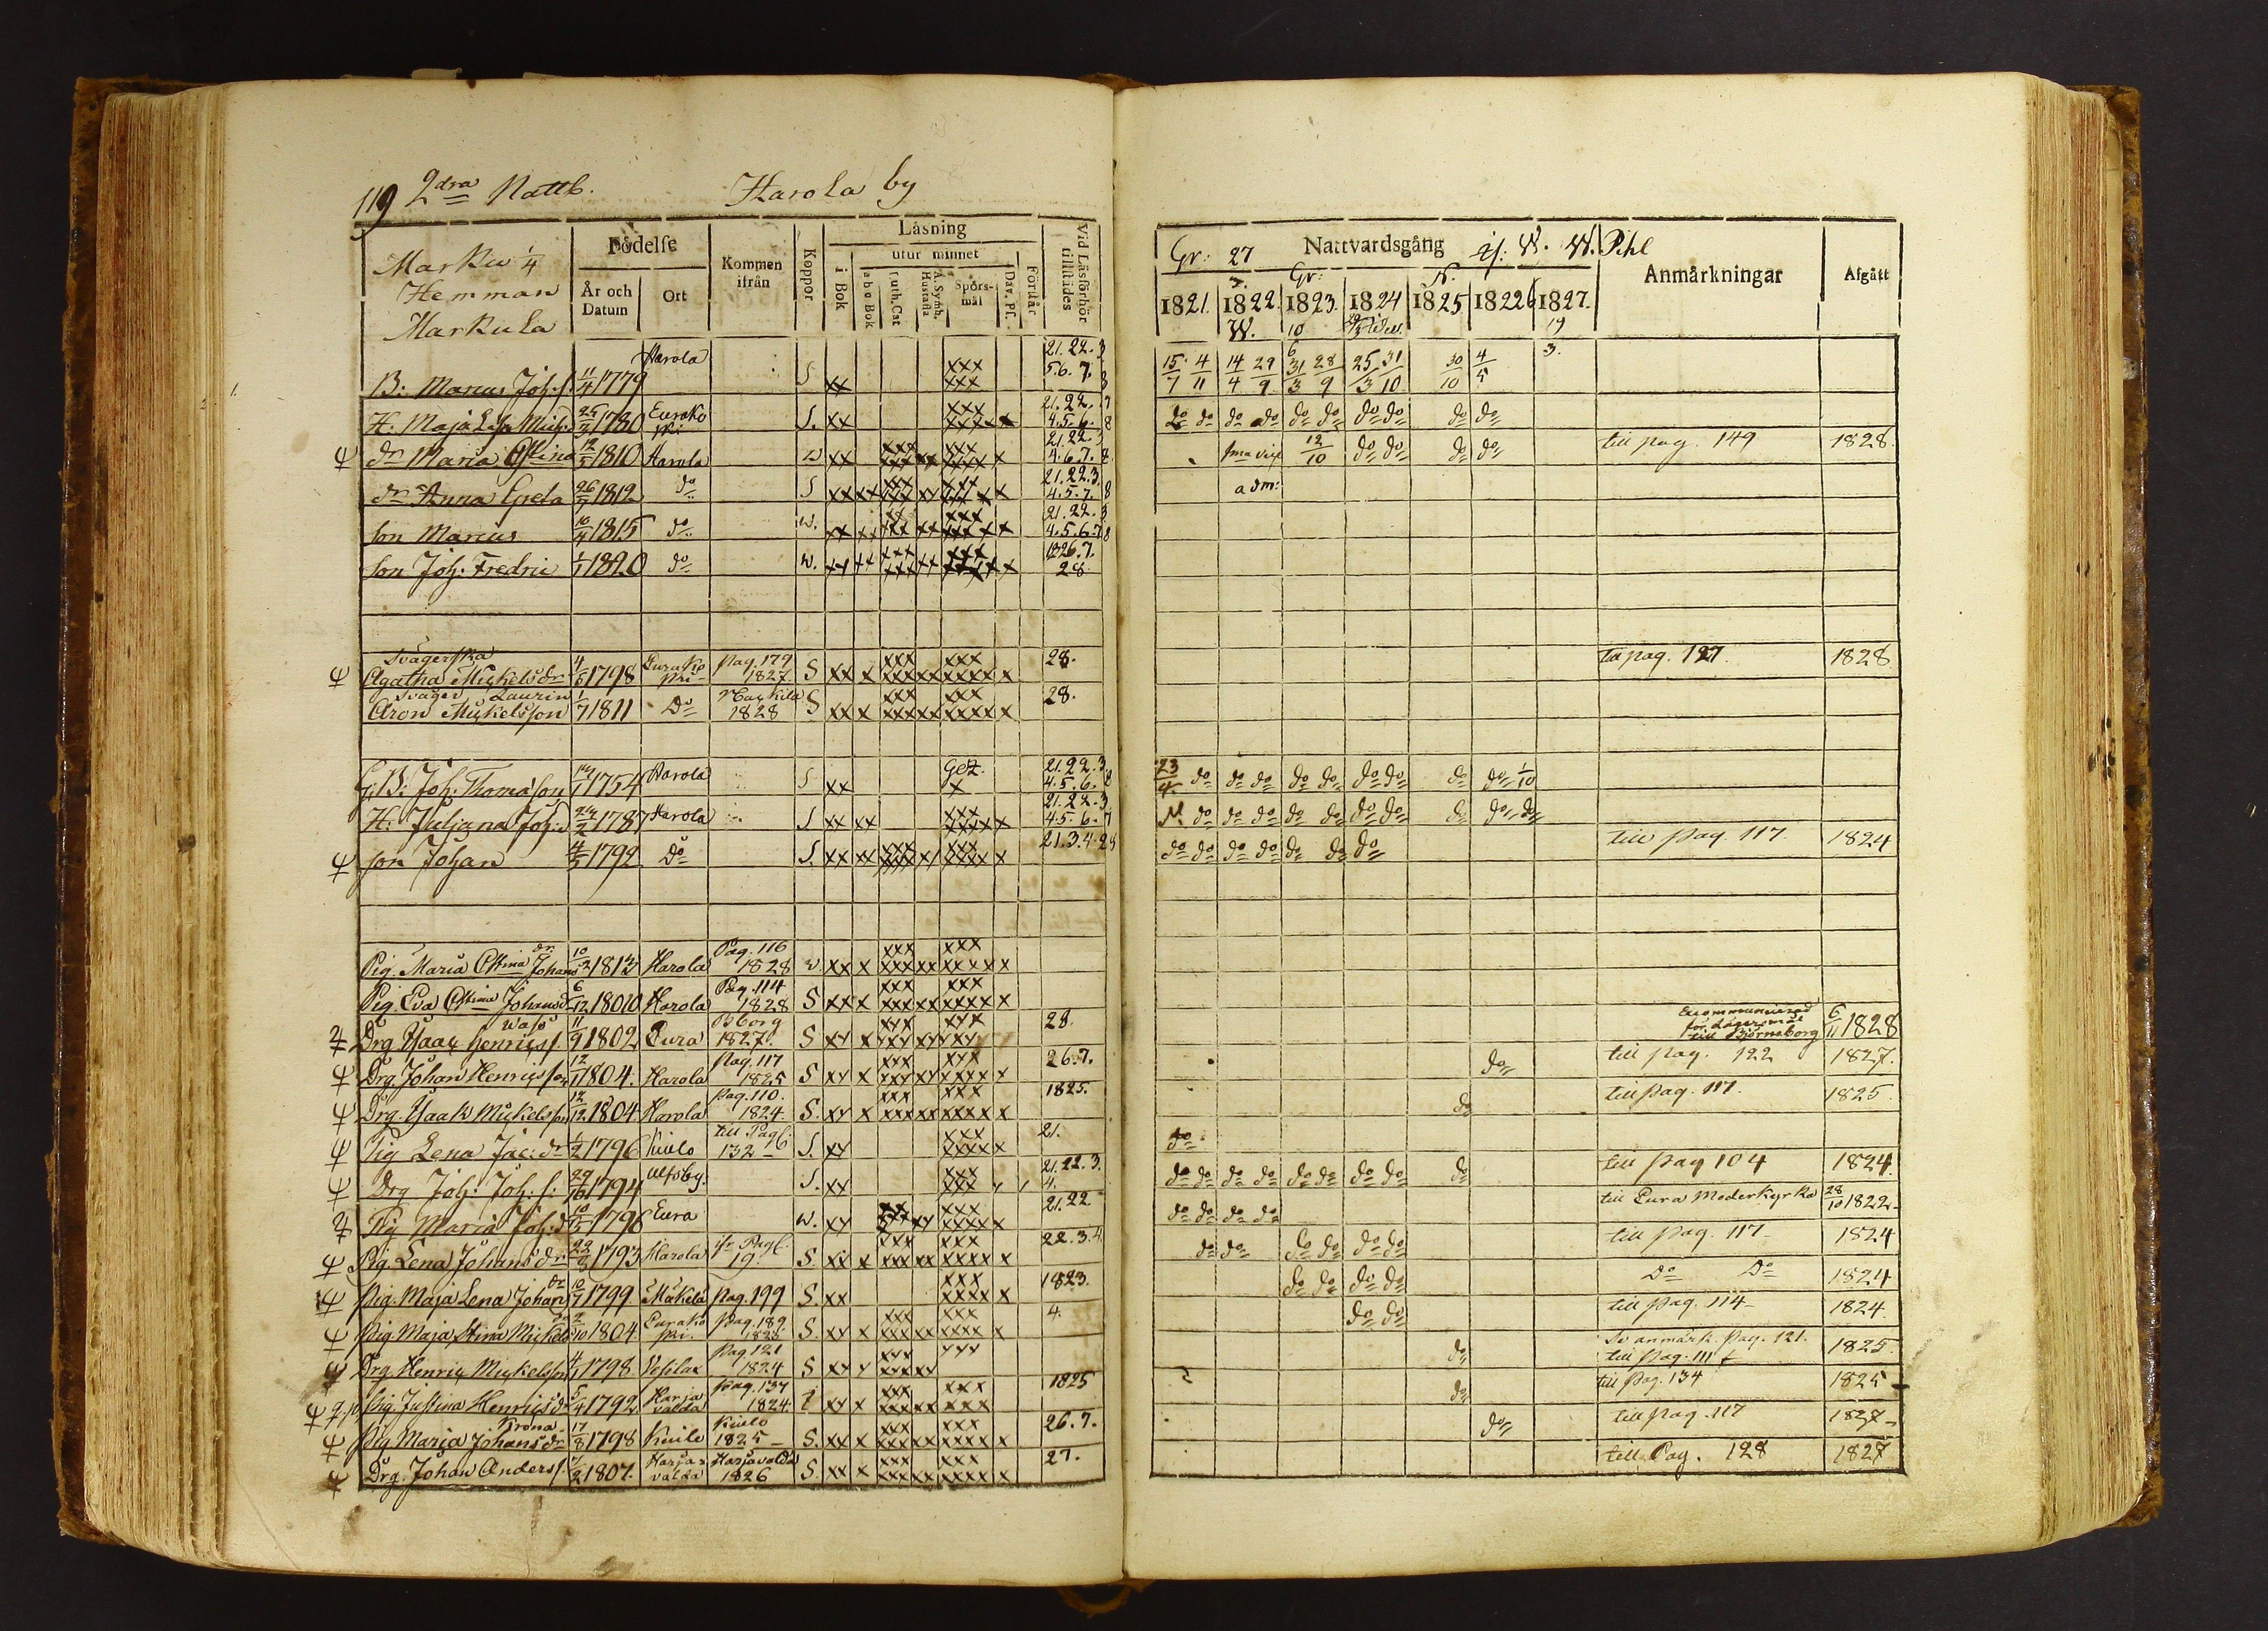 119 2dra Nattb. Harola by
Marku 1/4
Hemman
Markula
Födelse
År och Datum
Ort
Kommen ifrån
Koppor
Läsning
utur minnet
i Bok
a b c Bok
Luth. Cat
A. Symb. Hustafla
Spörsmål
Dav. Ps.
Förstår
Vid Läsförhör tillstädes
B: Marcus Joh:s. 11/4 1779 Harola S xx xxx xxx 21.22.3 5.6.7.8
H: Maja Lisa Mich:d 1780 Eurakoski S. xx xxx xxxxx 21.22.3 4.5.6.8
dr Maria Christina 12/5 1810 Harola w xx xxx xxx xx xxx xxx x 21.22.3 4.6.7.8
dr Anna Greta 26/7 1812 do S xx xx xxx xxx xx xxx xxx x 21.22.3. 4.5.7.8
son Marcus 10/4 1815 do w. xx xx xx xxx xx xxx xxx x x 21.22.3 4.5.6.7.8
son Joh: Fredric 1/1 1820 do w. xx xx xxx xxx xx xxx xxx x x 1826.7. 28
Svägerska
Agatha Mickelsdr 4/5 1798 Eurakoski Pag. 179 1827 S xx x xxx xxx xx xxx xxxx x 28.
Svåger Laurin
Aron Mickelsson 1/7 1811 Do 1828 S xx x xxx xxx xx xxx xxxx x 28.
G:B: Joh: Thomasson 1754 Harola S xx x 21.22.3 4.5.6.8
H: Juliana Joh:d 24/2 1787 Harola S xx xx xxx xxxxx 21.22.3 4.5.6.7
son Johan 1792 Do S. xx xx xxx xxx xx xxx xxxx x 21.3.4.28
Pig. Maria Christina Johansdr 10/2 1812 Harola Pag. 116 1828 w xx x xxx xxx xx xxx xxxx x
Pig. Eva Christina Johansd 6/12 1801 Harola Pag. 114 1828 S xx x xxx xxx xx xxx xxxx x
Drg Isaac Henricss. 11/9 1802 Eura Bborg 1827. S xx x xxx xxx xx xxx xx 28.
Drg. Johan Henricsson 12/1 1804. Harola Pag. 117 1825 S xx x xxx xxx xx xxx xxxx x 26.7.
Drg. Isaak Mickelsson 12/12 1804 Harola Pag. 110. 1824 S. xx x xxx xxx xx xxx xxxx x 1825.
Pig Lena Jac: dr 1796 Kiulo till Pag: 132 S. xx xxx xxxxx 21.
Drg Joh: Joh: s: 29/10 1794 Ulfsby. S. xx xxx xxx x 21.22.3. 4.
Pig Maria Joh:d 1796 Eura w. xx xx xxx xx xxx xxxxx 21.22
Pig. Lena Johansdr 22/8 1793 Harola Pag: 19. S. xx x xxx xxx xx xxx xxxx x 22.3.4.
Pig. Maja Lena Johansdr 10/7 1799 Mickela Pag. 199 S. xx xxx xxxx x 1823.
Pig. Maja Stina Mickelsdr 2/10 1804 Eurakoski. Pag. 189 S. xx x xxx xxx xx xxx xxxx x 4.
Drg. Henric Mickelsson 4/1 1798. Vesilax Pag 121 1824 S xx x xxx xxx xx xxx
Pig. Justina Henricsdr 5/4 1792 Harjavalda Pag. 134 1824 xx x xxx xxx xx xxx xxx 1825
Pig. Maria Johansdr 17/8 1798 Kiulo Kiulo 1825 S. xx x xxx xxx xx xxx xxxx x 26.7.
Drg. Johan Anderss. 7/2 1807. Harjavalda Harjavalda 1826 S. xx x xxx xxx xx xxx xxxx x 27.
Gr: 27 Nattvardsgång W. Pihl
Anmärkningar
Afgått
1821. 1822. 1823. 1824 1825 1826 1827.
15/7 4/11 14/4 29/9 31/3 28/9 25/3 31/10 30/10 4/5 3.
do do do do do do do do do do
12/10 do do do do till pag. 149 1828.
adm:
till pag. 127. 1828
23/4 do do do do do do do do do 1/10
N. do do do do do do do do do do
do do do do do do do till pag 117. 1824
för Lägersmål till Björneborg 6/11 1828
do till pag. 122 1827.
do till pag. 117. 1825.
do
do do do do do do do do do till pag 104 1824.
do do do do till Eura Moderkyrka 28/10 1822
do do do do do do till pag. 117 1824
do do do do Do Do 1824
do do till pag. 114 1824.
do Se anmärk. pag. 121. till pag. 111 1825.
do till pag. 134 1825
do till pag. 117 1827
till Pag. 128 1827